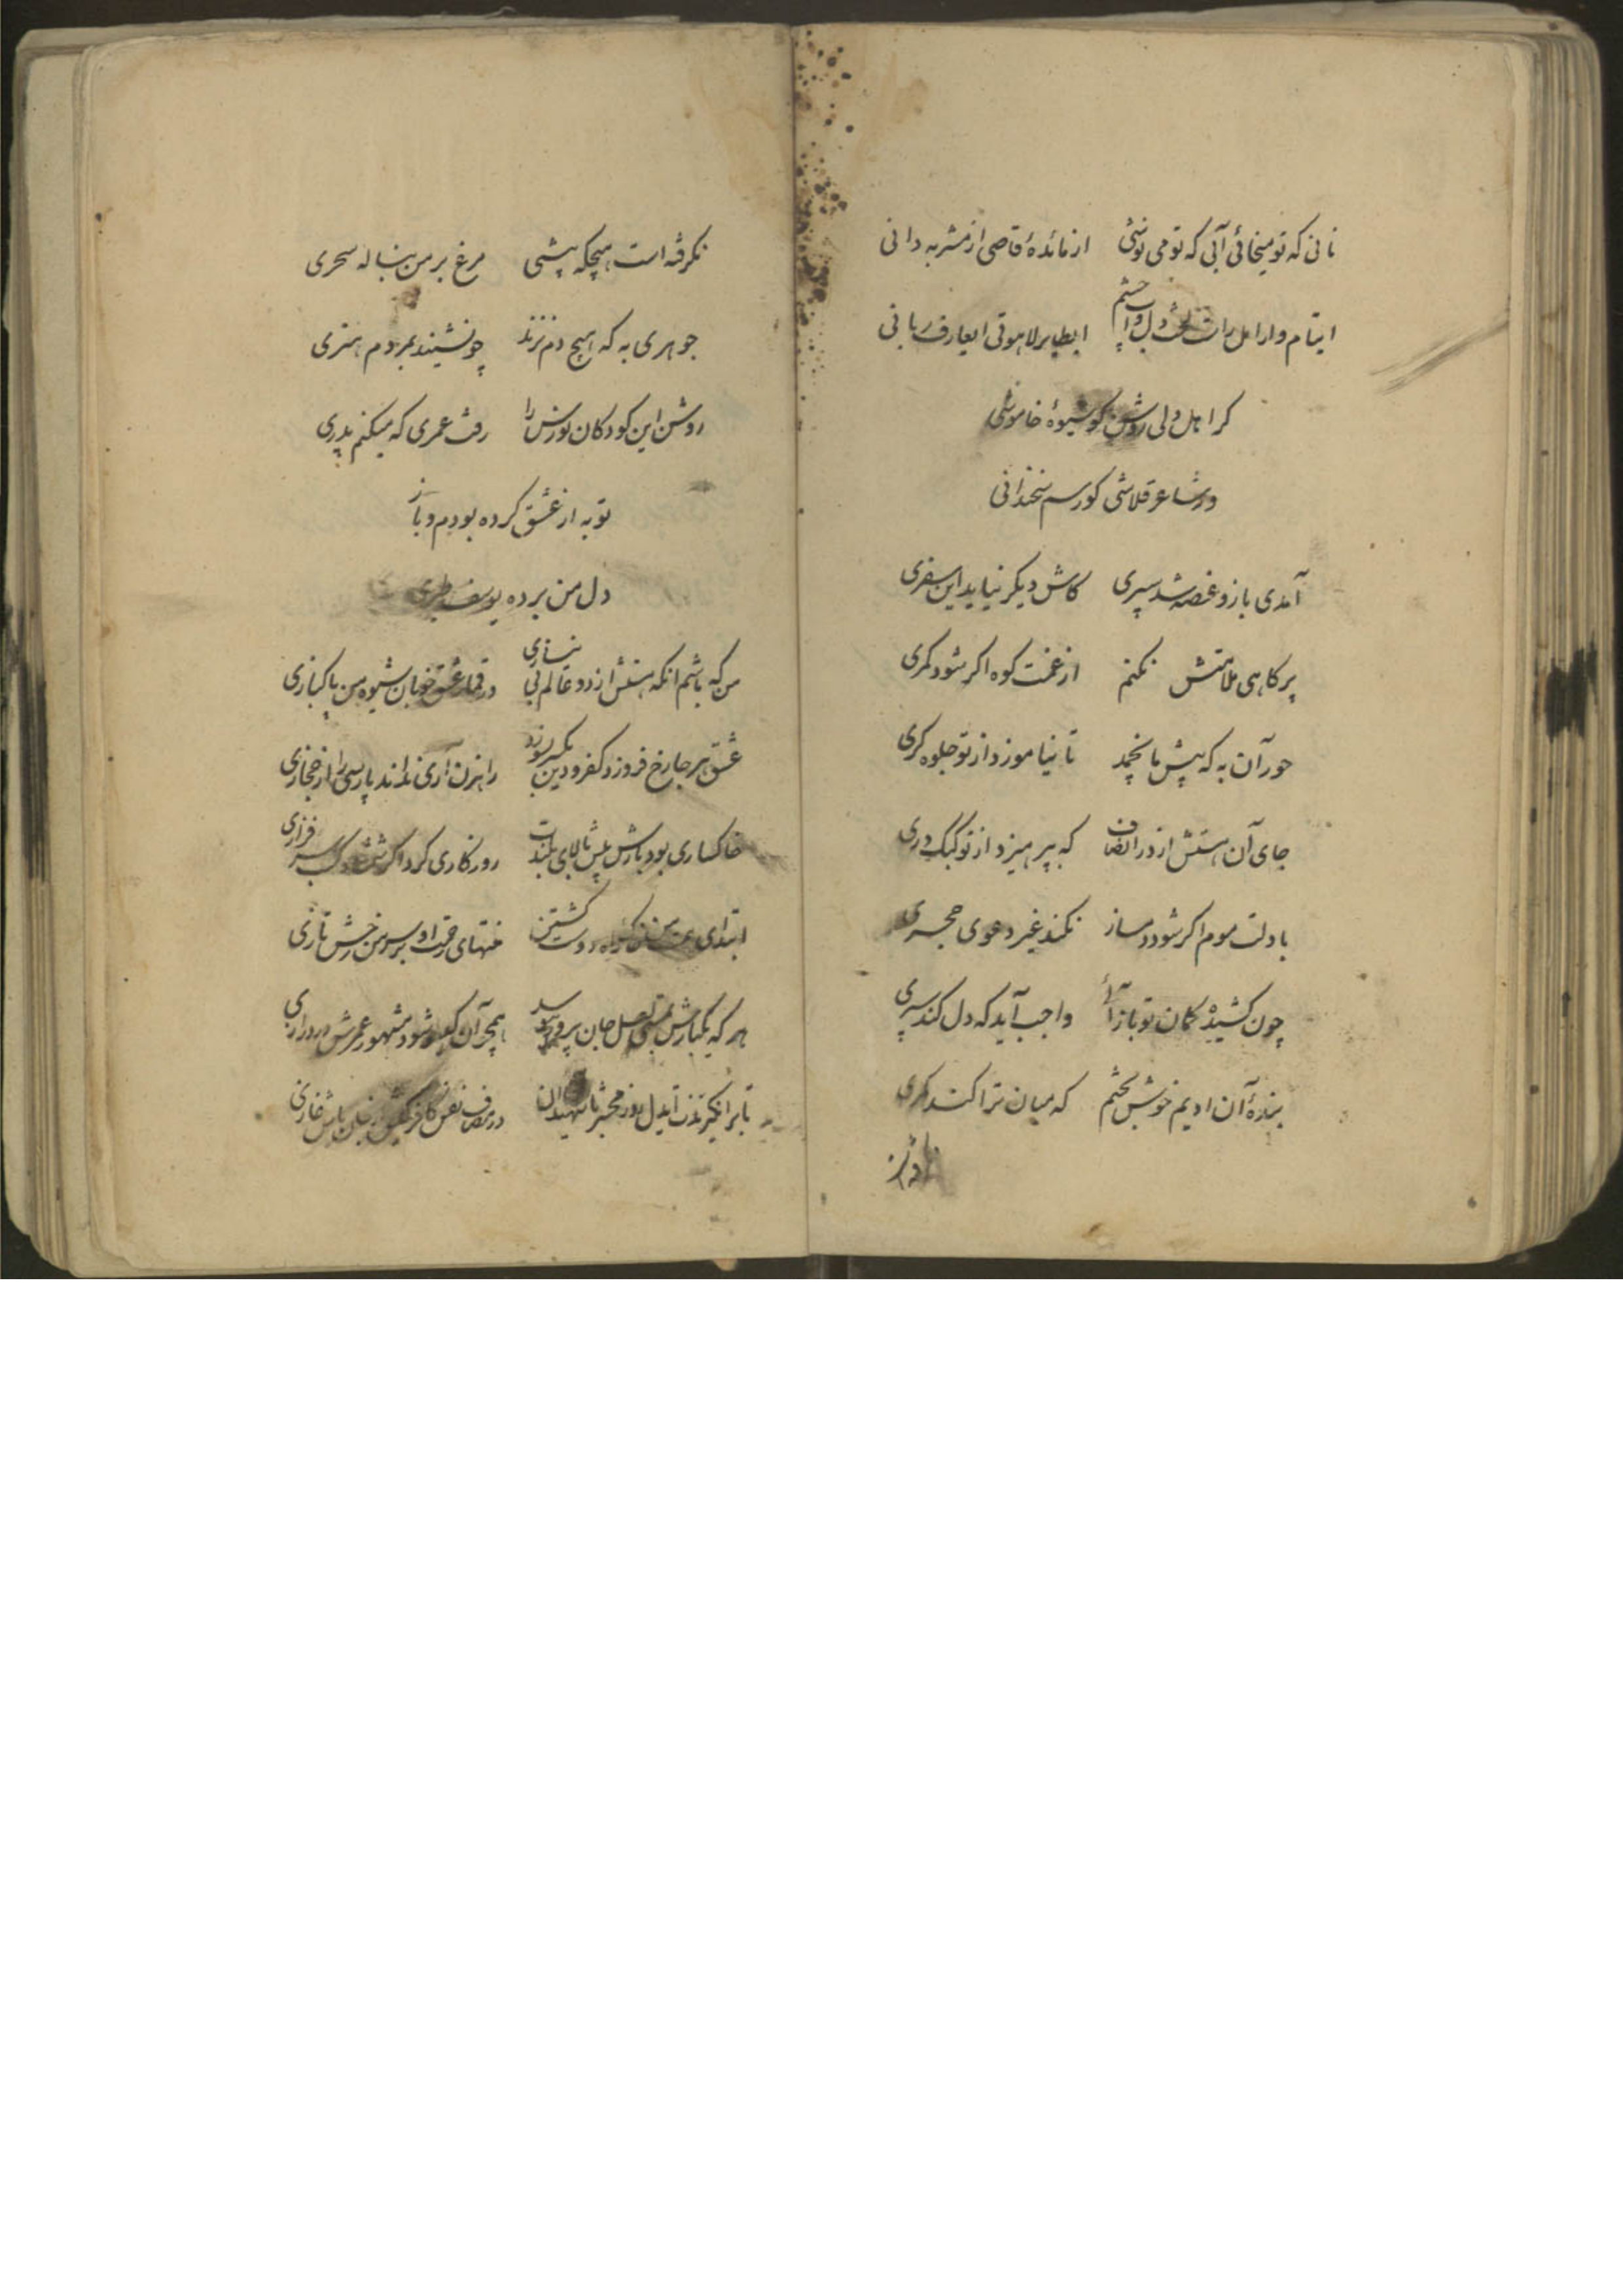 نانی که تو میخائی آبی که تو می نوشی از مائدهٔ قاصی از مشربه دانی
ایتام و ارامل راست دل و چشم ایطایر لاهوتی ایعارف ربانی
کر اهل دلی روشن کو شیوهٔ خاموشی
ور شاعر قلاشی کو رسم سخندانی
آمدی باز و غصه شد سپری کاش دیکر نیاید این سفری
پر کاهی ملامتش نکنم از غمت کوه اکر شود کمری
حور آن به که پیش ما نچمد تا نیاموزد از تو جلوه کری
جای آن هستش از در انصاف که بپرهیزد از تو کبک دری
با دلت موم اکر شود دمساز نکند غیر دعوی حجری
چون کشیدهٔ کمان تو باز آئی واجب آید که دل کند سپری
بندهٔ آن ادیم خوش بختم که میان ترا کند کمری
نکرفته است هیچکه پیشی مرغ بر من بناله سحری
جوهری به که هیچ دم نزند چو نشیند بمردم هنری
روشن این کودکان نورس را رفت عمری که میکنم پدری
توبه از عشق کرده بودم و باز
دل من برده یوسف
من که باشم انکه هستش از دو عالم بی نیازی در قمار عشق خوبان شیوه من پاکبازی
عشق هر جا رخ فروزد کفر و دین یکسر بسوزد راهزن آری نداند پارسی را از حجازی
خاکساری بود بارش پیش بالای بلندت روزکاری کرد اکر سرفرازی
ابتدای کشتن منتهای رحمت او بر سر من رخش تازی
هر که یکبارش لعل جان پرور همچو آن کیسو شود مشهور عمرش در درازی
تا بر انکیزندت ایدل روز محشر با شهیدان در مصاف نفس کافر باش غازی